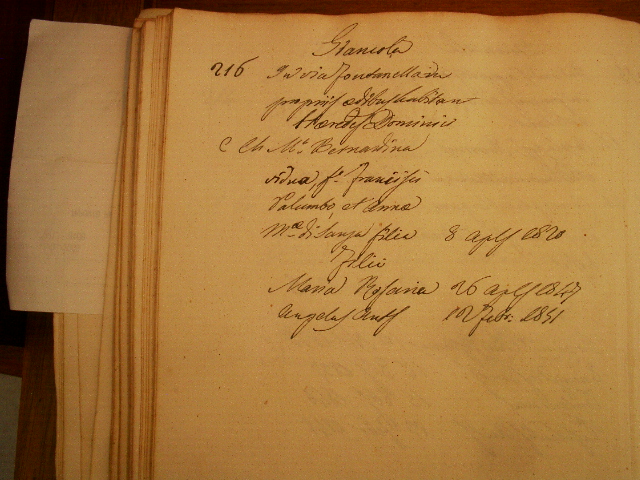 Giancola
216 In via Fontanella in
propriis ædibus habitan
Hæredes Dominici
C Ch Mª Bernardina
vidua fª Francisci
Palumbo, et Annæ
Mæ di Sanza filia 8 aplis 1820
Filii
Maria Rosaria 26 aplis 1847
Angelus Ants 12 Febr. 1851